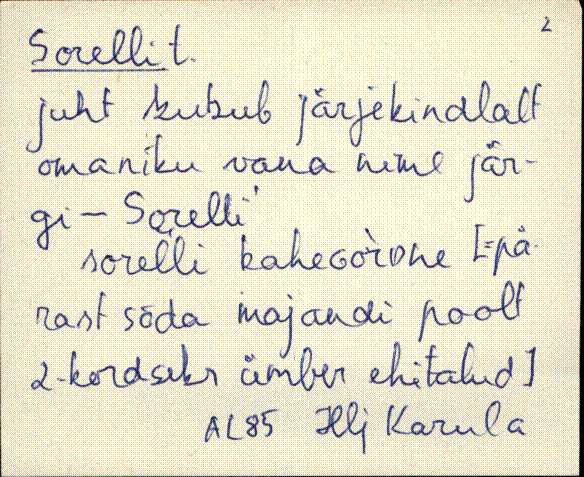 2
Sorelli t.
juht kutsub järjekindlalt
omaniku vana nime jär-
gi — Sorelli
sorelli kahe [=pä-
rast sõda majandi poolt
2-kordseks ümber ehitatud]
AL85 Hlj Karula